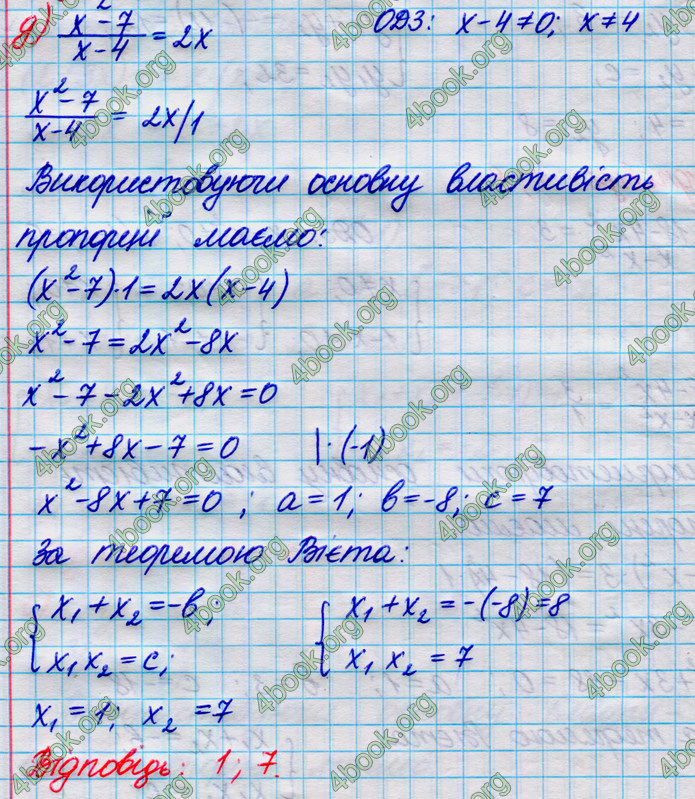 д) x² - 7 / x - 4 = 2x    ОДЗ: x - 4 ≠ 0; x ≠ 4
x² - 7 / x - 4 = 2x/1
Використовуючи основну властивість
пропорції маємо:
(x² - 7)·1 = 2x(x - 4)
x² - 7 = 2x² - 8x
x² - 7 - 2x² + 8x = 0
-x² + 8x - 7 = 0    |·(-1)
x² - 8x + 7 = 0; a = 1; b = -8; c = 7
За теоремою Вієта:
{ x₁ + x₂ = -b;    { x₁ + x₂ = -(-8) = 8
x₁ x₂ = c;    x₁ x₂ = 7
x₁ = 1; x₂ = 7
Відповідь: 1; 7.
4book.org